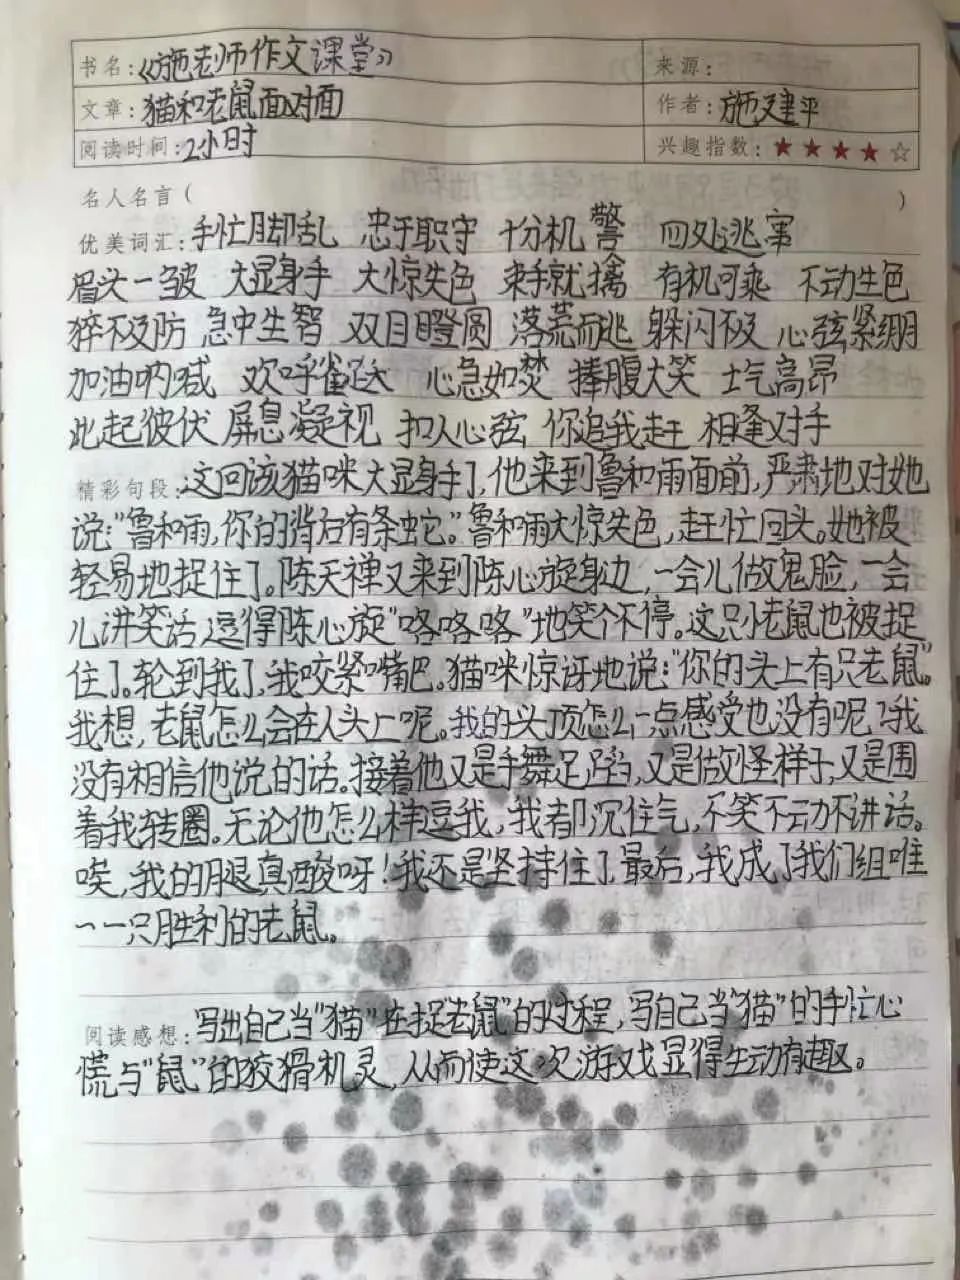 书名:《施老师作文课堂》 来源:
文章:猫和老鼠面对面 作者:施建平
阅读时间:2小时 兴趣指数:★★★★☆
名人名言( )
优美词汇:手忙脚乱 忠于职守 十分机警 四处逃窜
眉头一皱 大显身手 大惊失色 束手就擒 有机可乘 不动生色
猝不及防 急中生智 双目瞪圆 落荒而逃 躲闪不及 心弦紧绷
加油呐喊 欢呼雀跃 心急如焚 捧腹大笑 士气高昂
此起彼伏 屏息凝视 扣人心弦 你追我赶 相逢对手
精彩句段:这回该猫咪大显身手了,他来到鲁和雨面前,严肃地对她
说:“鲁和雨,你的背后有条蛇。”鲁和雨大惊失色,赶忙回头。她被
轻易地捉住了。陈天禅又来到陈心旋身边,一会儿做鬼脸,一会
儿讲笑话,逗得陈心旋“咯咯咯”地笑个不停。这只小老鼠也被捉
住了。轮到我了,我咬紧嘴巴。猫咪惊讶地说:“你的头上有只老鼠”。
我想,老鼠怎么会在人头上呢。我的头顶怎么一点感受也没有呢?我
没有相信他说的话。接着他又是手舞足蹈,又是做怪样子,又是围
着我转圈。无论他怎么样逗我,我都沉住气,不笑不动不讲话。
唉,我的腿真酸呀!我还是坚持住了,最后,我成了我们组唯
一一只胜利的老鼠。
阅读感想:写出自己当“猫”在捉老鼠”的过程,写自己当“猫”的手忙心
慌与“鼠”的狡猾机灵,从而使这次游戏显得生动有趣。